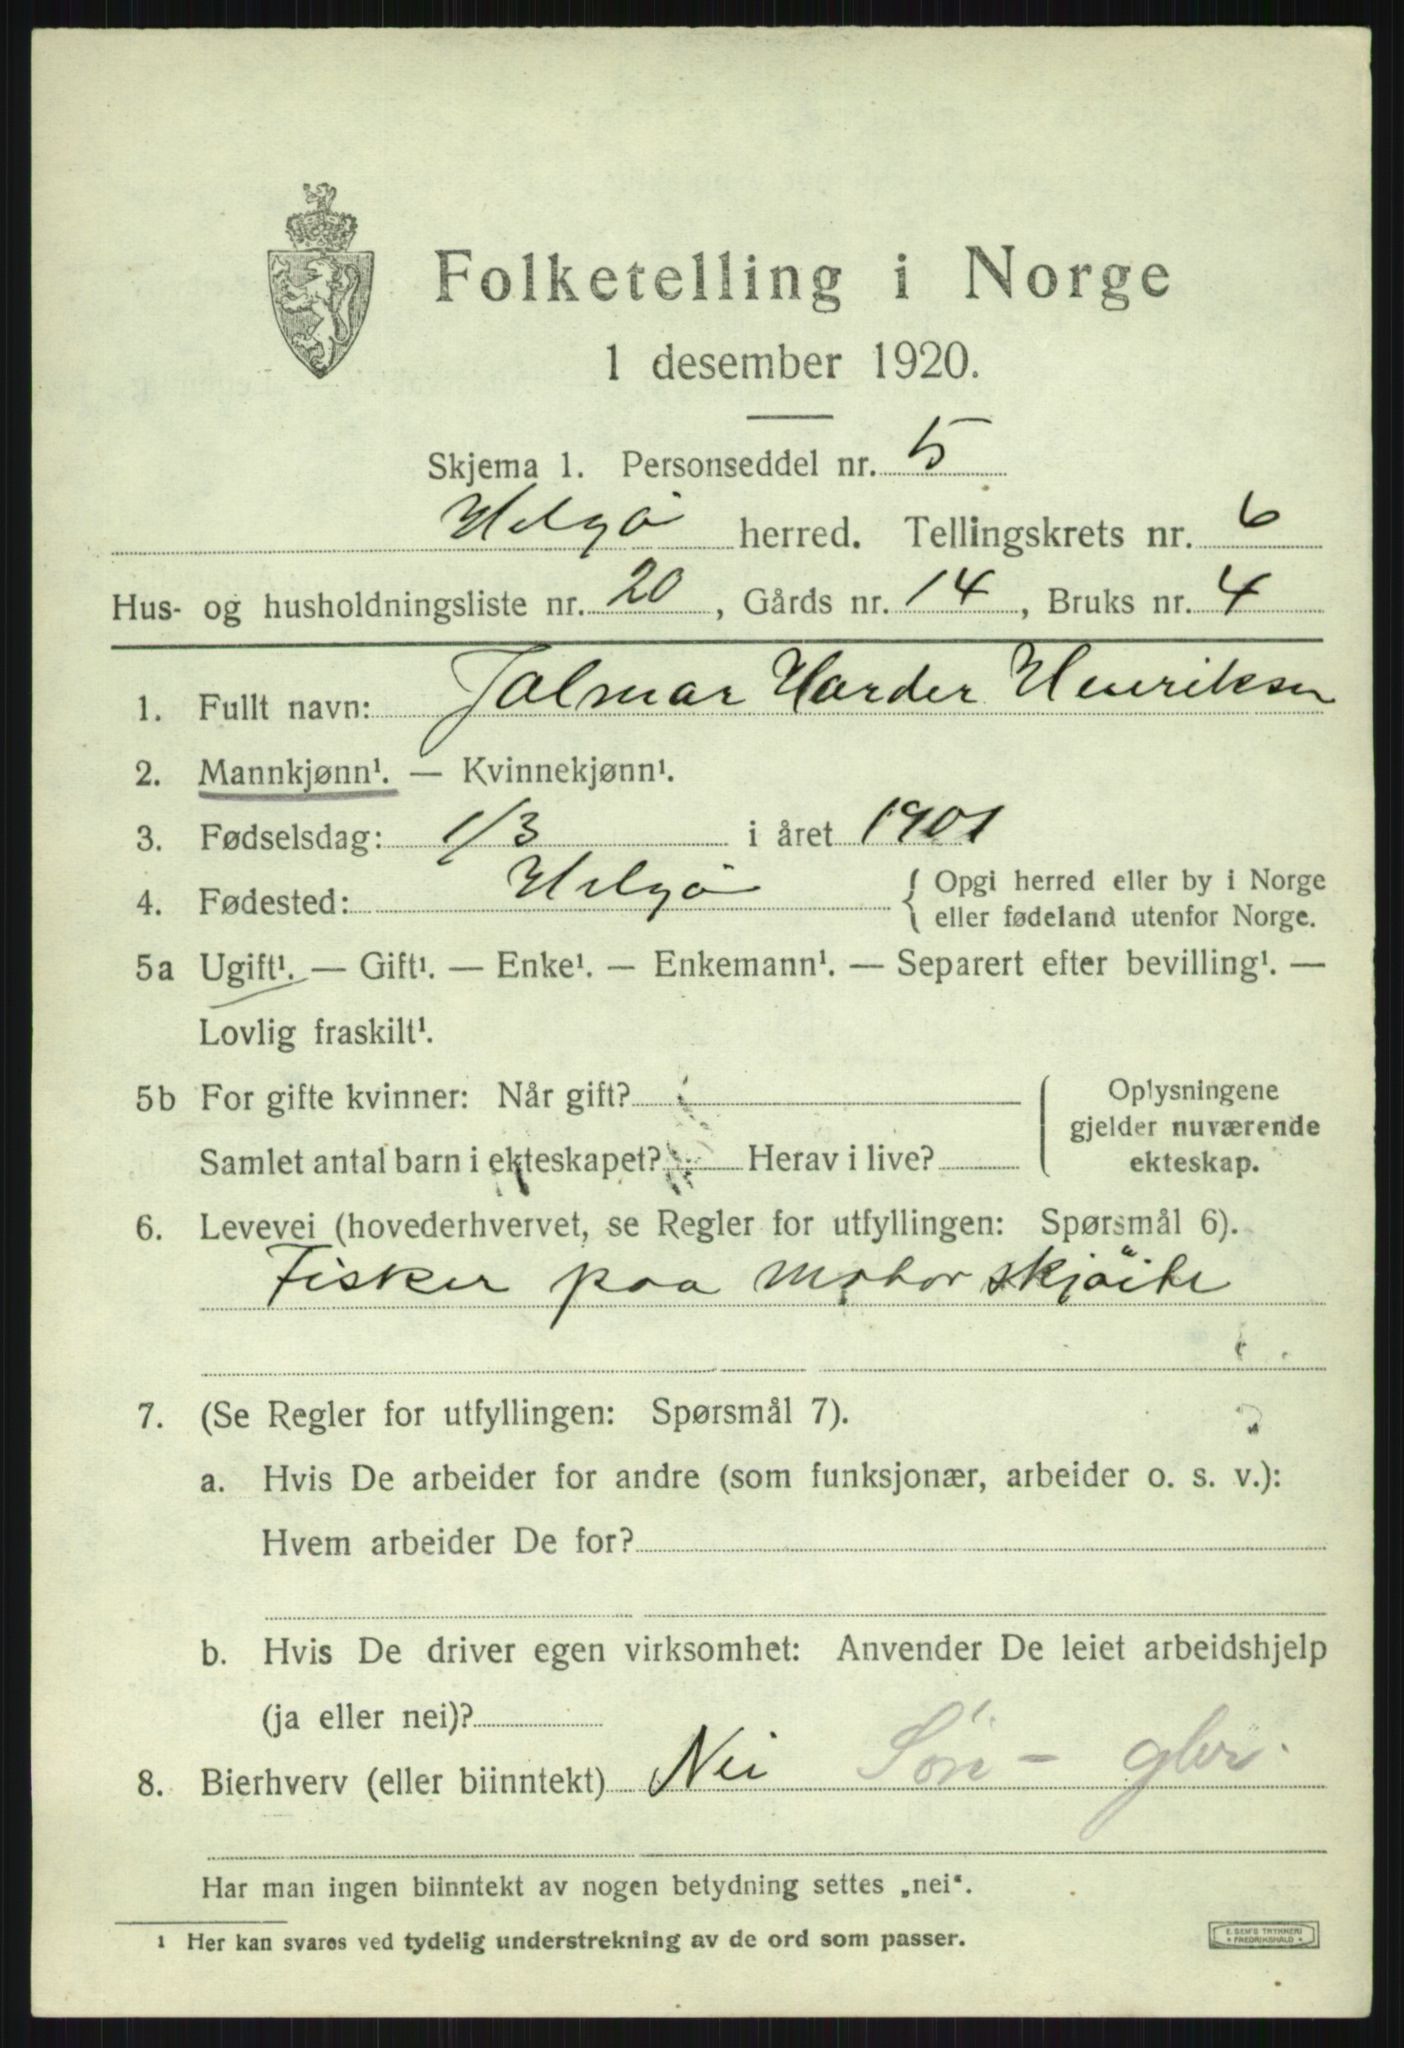 Folketelling i Norge
1 desember 1920.
Skjema 1. Personseddel nr. 5
Helgö herred. Tellingskrets nr. 6
Hus- og husholdningsliste nr. 20, Gårds nr. 14, Bruks nr. 4
1. Fullt navn: Jalmar Harder Henriksen
2. Mannkjønn¹. — Kvinnekjønn¹.
3. Fødselsdag: 1/3 i året 1901
4. Fødested: Helgö { Opgi herred eller by i Norge
eller fødeland utenfor Norge.
5a Ugift¹. — Gift¹. — Enke¹. — Enkemann¹. — Separert efter bevilling¹. —
Lovlig fraskilt¹.
5b For gifte kvinner: Når gift?
Samlet antal barn i ekteskapet? Herav i live?
Oplysningene
gjelder nuværende
ekteskap.
6. Levevei (hovederhvervet, se Regler for utfyllingen: Spørsmål 6).
Fisker paa motor skjöite
7. (Se Regler for utfyllingen: Spørsmål 7).
a. Hvis De arbeider for andre (som funksjonær, arbeider o. s. v.):
Hvem arbeider De for?
b. Hvis De driver egen virksomhet: Anvender De leiet arbeidshjelp
(ja eller nei)?
8. Bierhverv (eller biinntekt) Nei
Har man ingen biinntekt av nogen betydning settes „nei".
¹ Her kan svares ved tydelig understrekning av de ord som passer.
E. SEM'S TRYKKERI
FREDRIKSHALD